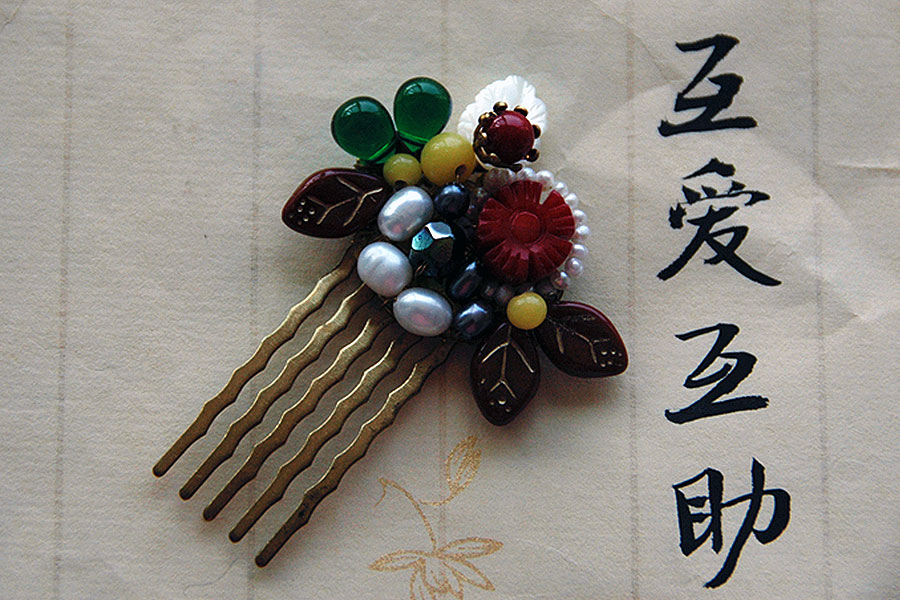 互爱互助